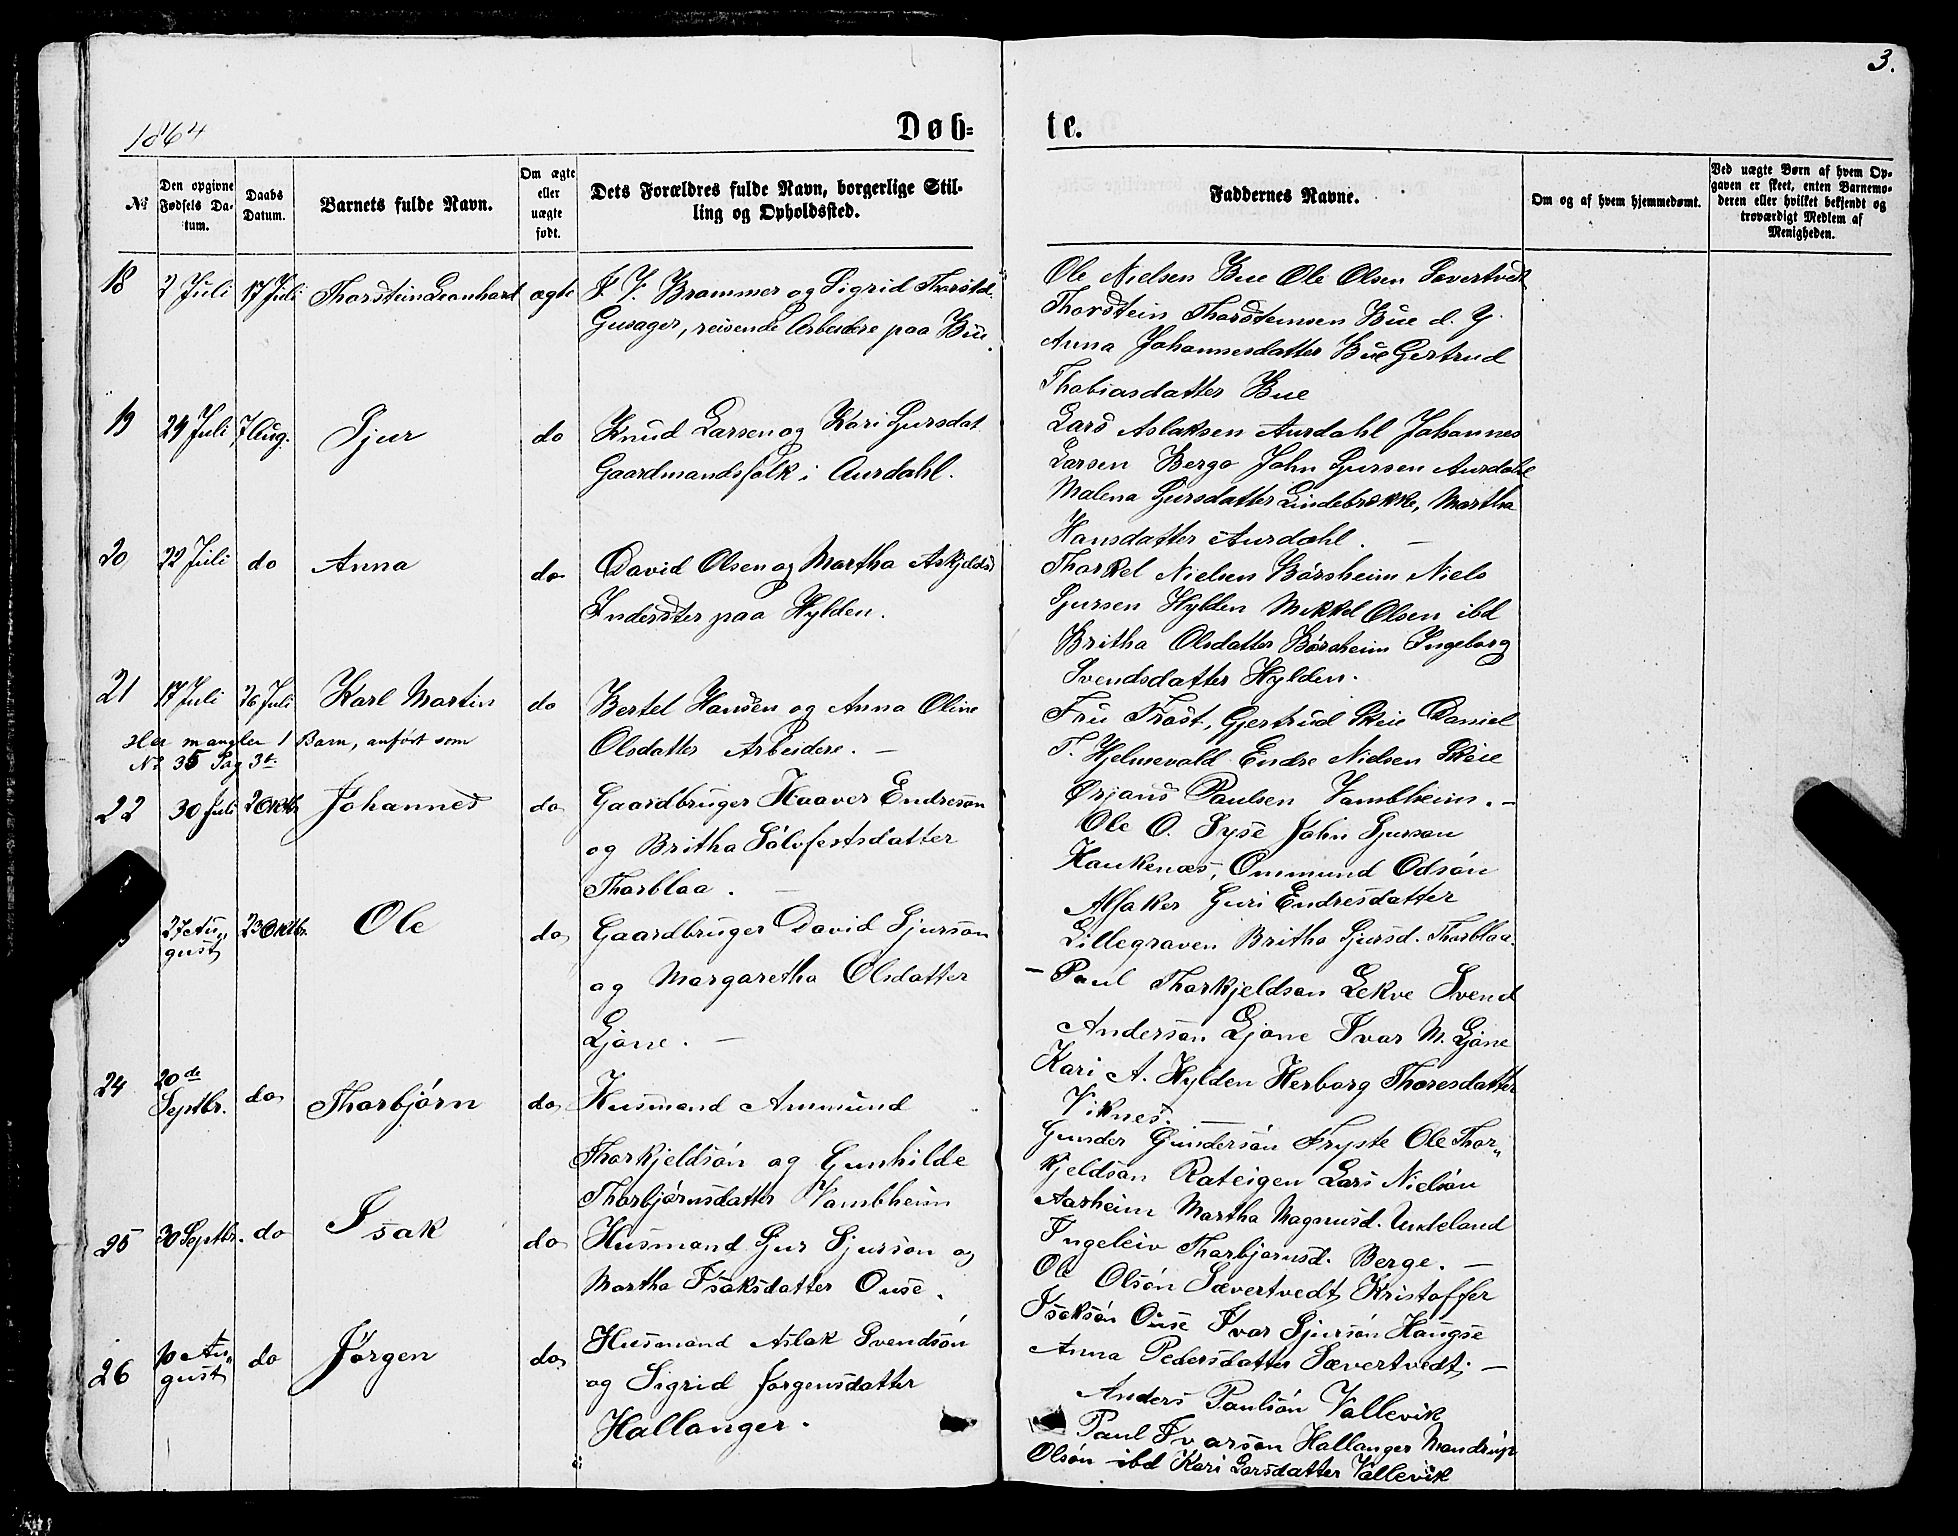 3.
1864
Døb- te.
№
Den opgivne Fødsels Datum.
Daabs Datum.
Barnets fulde Navn.
Om ægte eller uægte født.
Dets Forældres fulde Navn, borgerlige Stilling og Opholdssted.
Faddernes Navne.
Om og af hvem hjemmedømt.
Ved uægte Børn af hvem Opgaven er skeet, enten Barnemoderen eller hvilket bekjendt og troværdigt Medlem af Menigheden.
18 2 Juli 17 Juli Thorstein Leonhard ægte
Brammer og Sigrid Thorstd.
reisende Arbeidere paa Bue
Ole Nielsen Bue Ole Olsen Sævertvedt
Thorstein Thorsteinsen Bue d. Y.
Anna Johannesdatter Bue Gertrud
Thobiasdatter Bue
19 24 Juli 7 Aug. Sjur do
Knud Larsen og Kari Sjursdat
Gaardmandsfolk i Aurdahl.
Lars Aslaksen Aurdahl Johannes
Larsen Berge John Sjursen Aurdahl
Malena Sjursdatter Lindebrække, Martha
Hansdatter Aurdahl. —
20 22 Juli do Anna do
David Olsen og Martha Askjeldsd
Inderster paa Hylden.
Thorkel Nielsen Børsheim Niels
Sjursen Hylden Mikkel Olsen ibd
Britha Olsdatter Børsheim Ingeborg
Svendsdatter Hylden.
21 17 Juli 26 Juli Karl Martin do
Bertel Hansen og Anna Oline
Olsdatter Arbeidere. —
Fru Frost, Gjertrud Skeie Daniel
T. Hjelmevold Endre Nielsen Skeie
Ørjans Paulsen Vambheim. —
Her mangler 1 Barn, anført som
No 35 Pag 3
22 30 Juli 2 Oktb Johannes do
Gaardbruger Haaver Endresøn
og Britha Sølvfestsdatter
Thorblaa. —
Ole O. Syse John Sjursøn
Haukenæs, Ommund Odsøn
Alsaker Guri Endresdatter
Lillegraven Britha Sjursd. Thorblaa.
27 Au„
gust 23 Oktbr. Ole do
Gaardbruger David Sjursøn
og Margaretha Olsdatter
Ljone. —
— Paul Thorkjeldsøn Lekve Svend
Andersøn Ljone Ivar M. Ljone
Kari A. Hylden Herborg Thoresdatter
Viknes. —
24 20de
Septbr. do Thorbjørn do
Husmand Ammund
Thorkjeldsøn og Gunhilde
Thorbjørnsdatter Vambheim
Gunder Gundersøn Tryste Ole Thor„
kjeldsøn Rateigen Lars Nielsøn
Aarheim Martha Magnusd. Undeland
Ingeleiv Thorbjørnsd. Berge. —
25 30 Septbr. do Isak do
Husmand Sjur Sjursøn og
Martha Isaksdatter Ouse.
Ole Olsøn Sævertvedt Kristoffer
Isaksøn Ouse Ivar Sjursøn Haugse
Anna Pedersdatter Sævertvedt. —
26 10 Au„
gust do Jørgen do
Husmand Aslak Svendsøn
og Sigrid Jørgensdatter
Hallanger.
Anders Paulsøn Vallevik
Paul Ivarsøn Hallanger Mandrup
Olsøn ibd Kari Larsdatter Vallevik